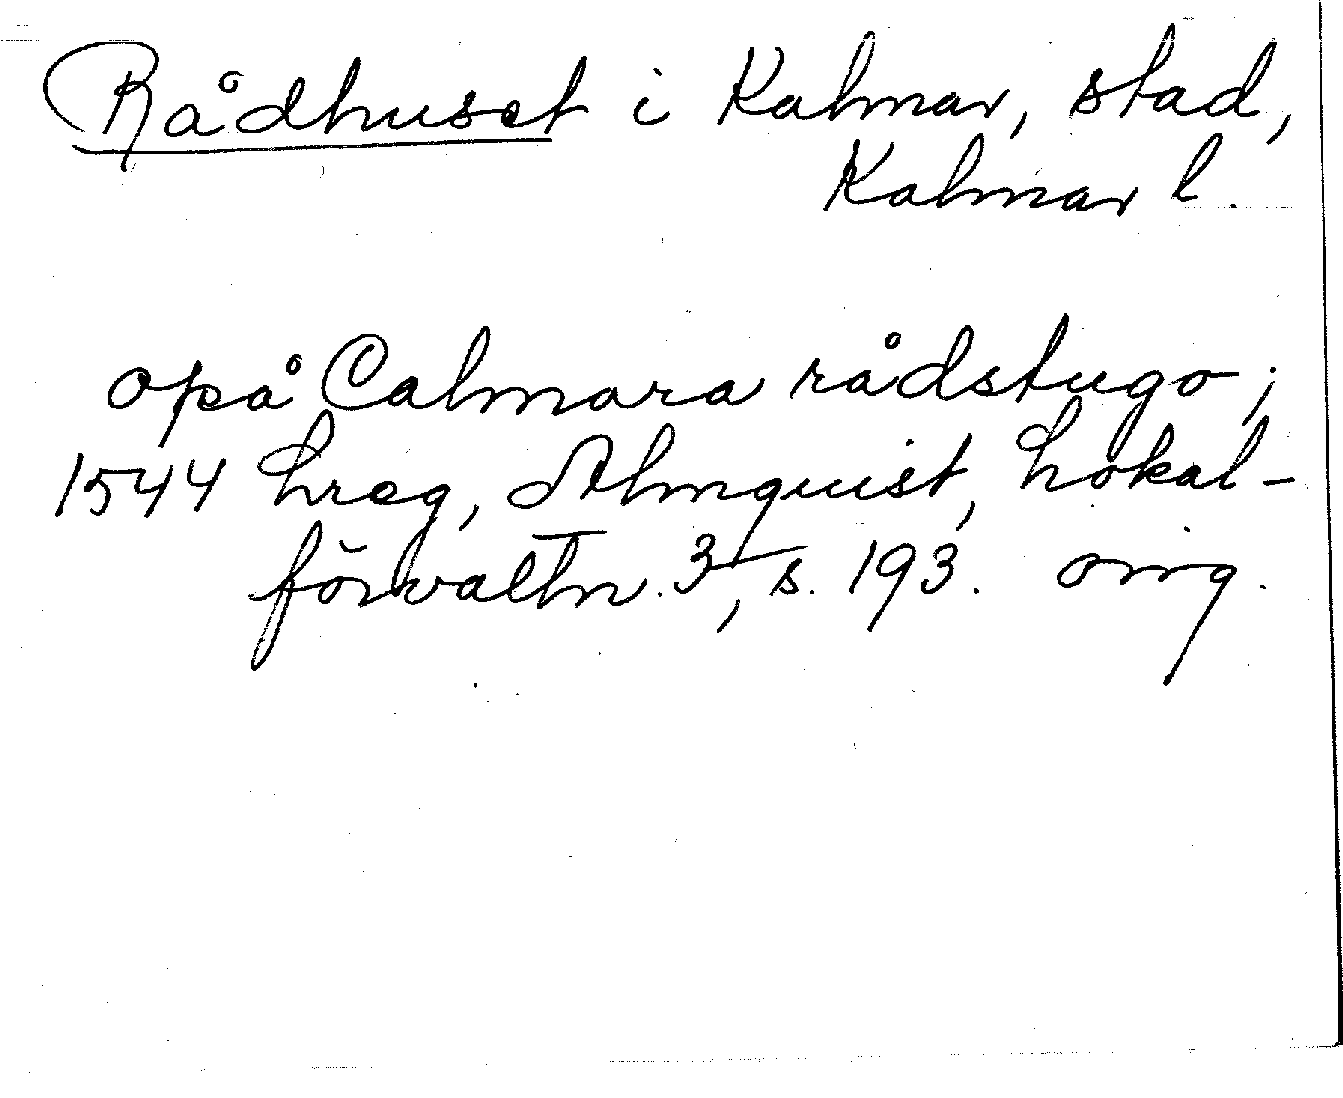 Rådhuset i Kalmar, stad,
Kalmar l.
opå Calmara rådstugo;
1544 hreg, Almquist, Lokal-
förvaltn. 3, s. 193. orig.